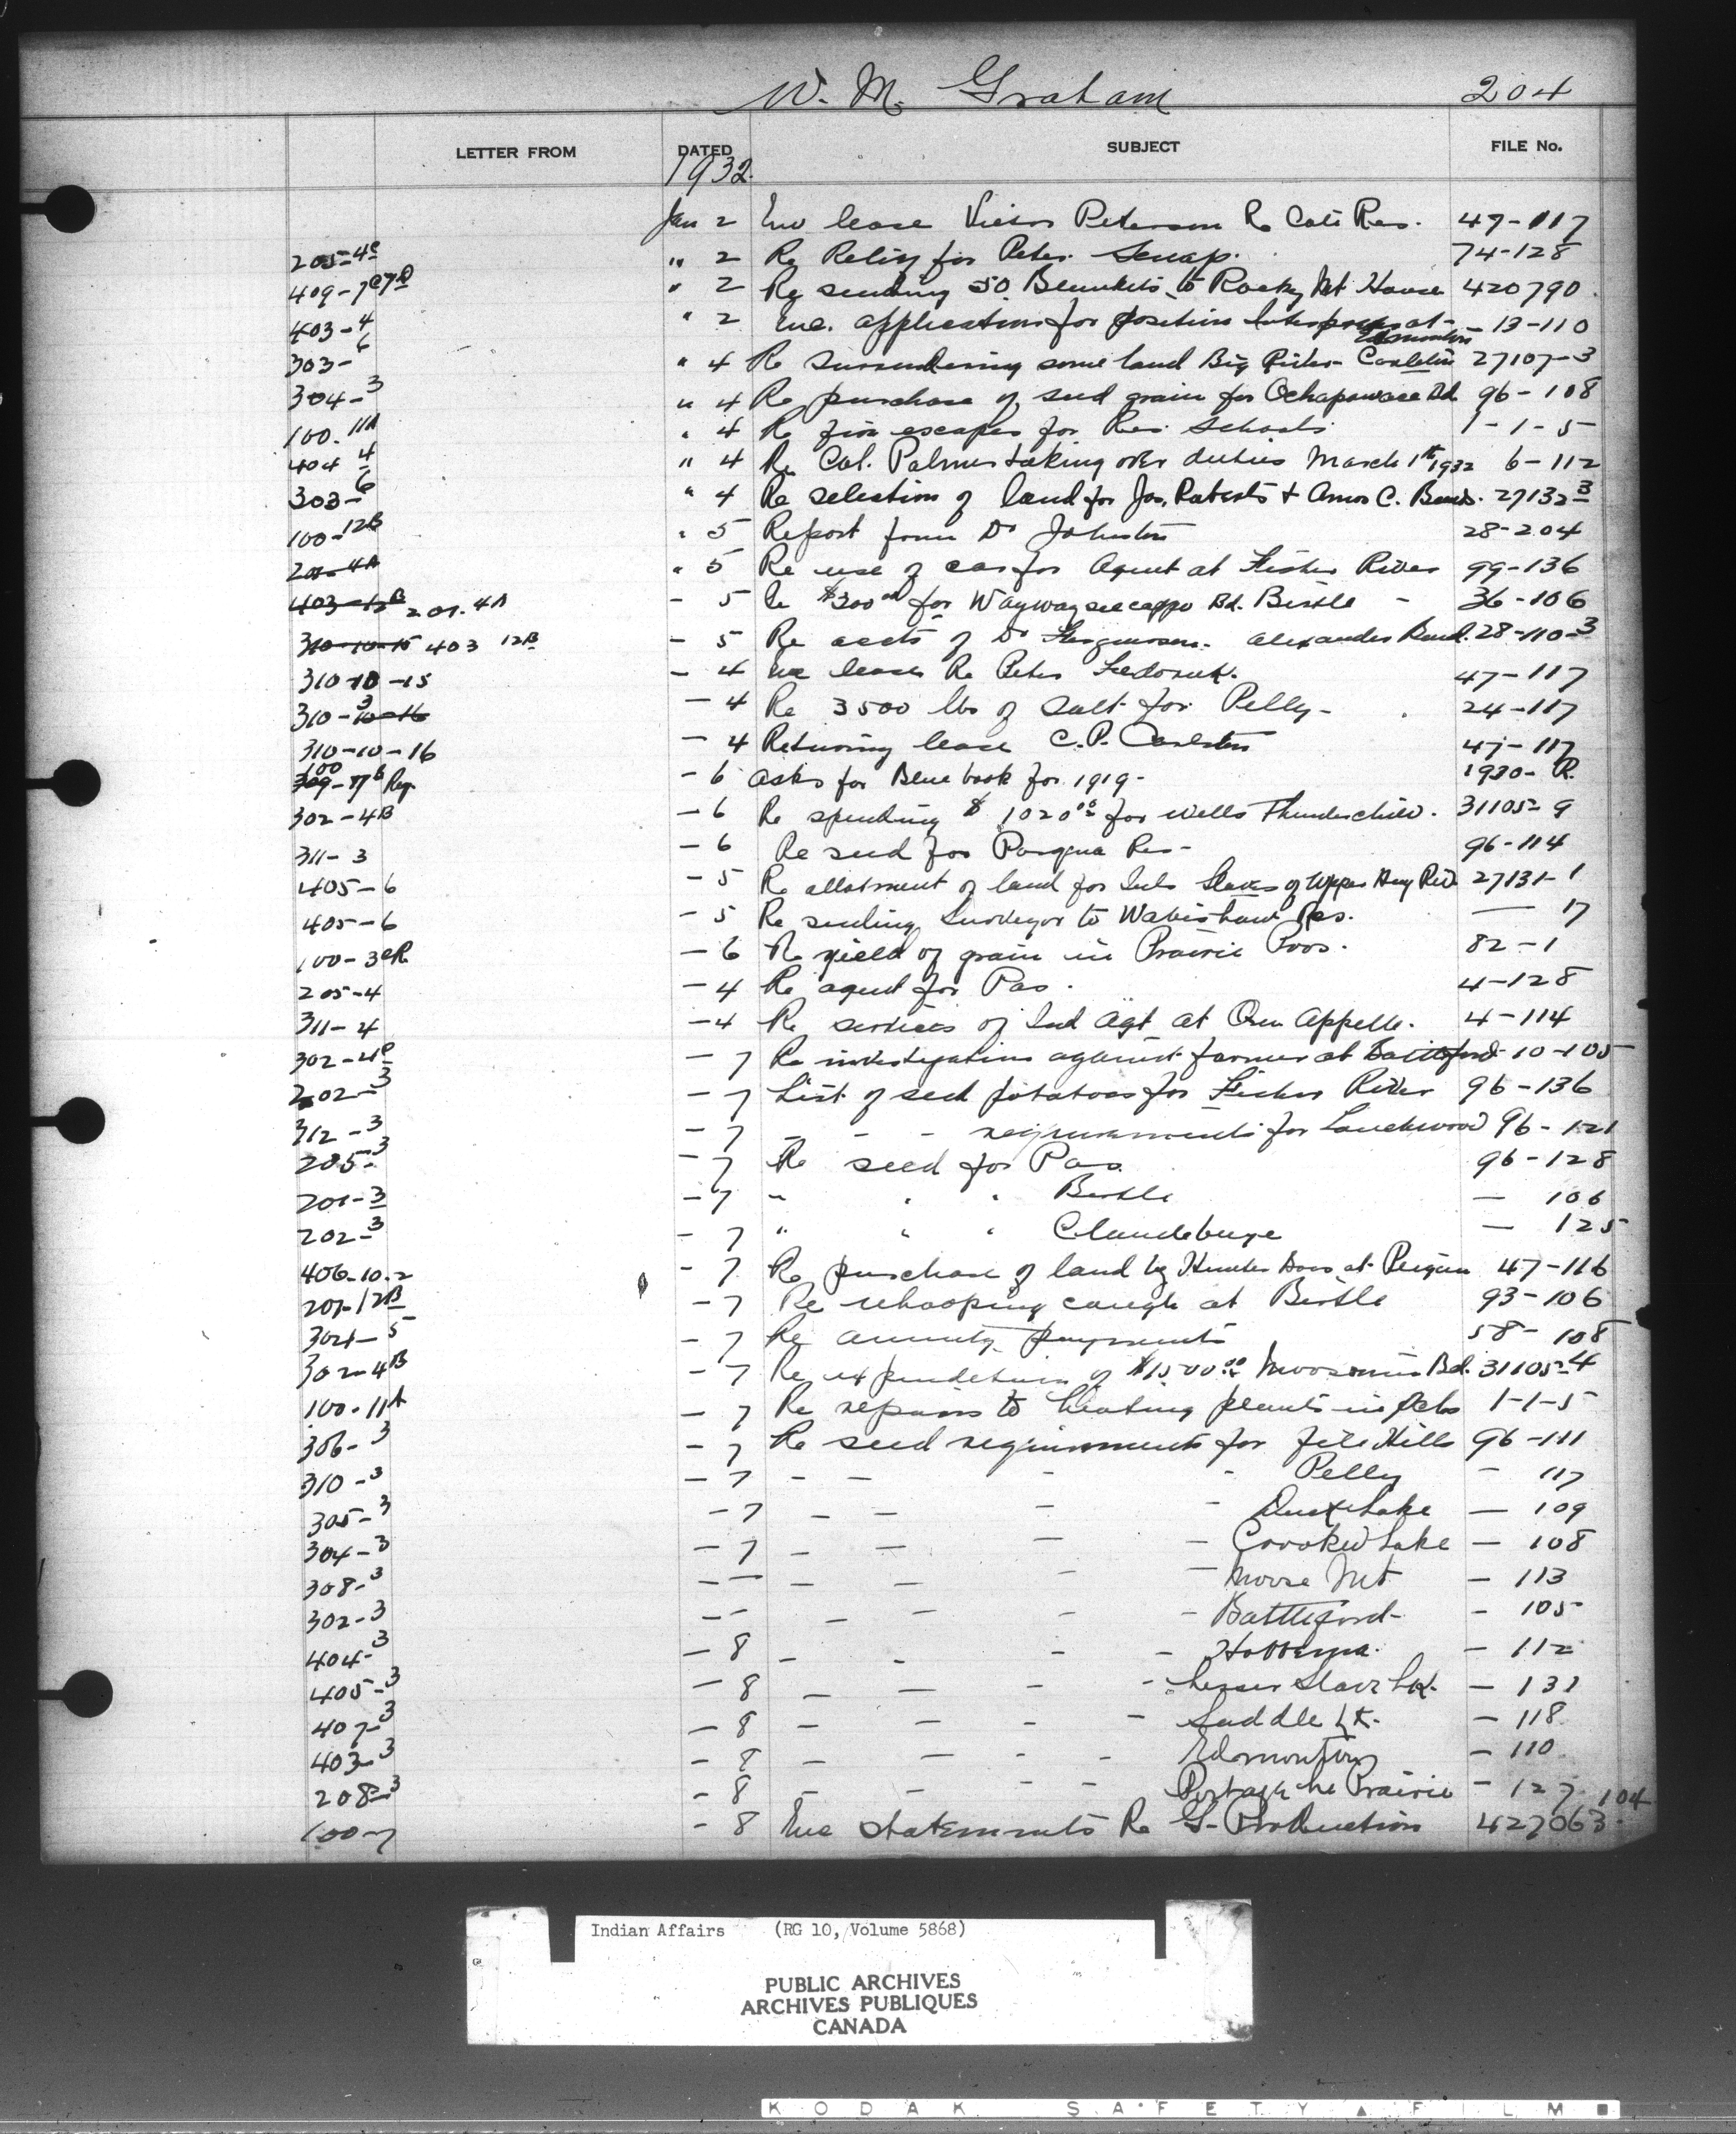 W. M. Graham 204
LETTER FROM DATED SUBJECT FILE No.
1932.
Jan 2 Enc lease Victor Peterson Re Coté Res. 47-117
205-4c " 2 Re Relief for Peter 74-128
409-7c7D " 2 Re sending 50 Blankets to Rocky Mt House 420790
403-4 " 2 Enc. application for position Interpreter at Edmonton - 13-110
303-6 " 4 Re surrendering some land Big River Carleton 27107-3
304-3 " 4 Re purchase of seed grain for Ochapowace Bd. 96-108
100-11A " 4 Re fire escapes for Res. Schools. 1-1-5
404 4 " 4 Re Col. Palmer taking over duties March 1st 1932 6-112
303-6 " 4 Re selection of land for Jos. Roberts & Amos C. 27132-3
100-12B " 5 Report from Dr Johnston 28-204
201-4A " 5 Re use of car for Agent at Fisher River 99-136
403-12B 201-4A - 5 Re $300.00 for Waywayseecappo Bd. Birtle - 36-106
310-10-15 403 12B - 5 Re accts of Dr Ferguson. Alexander Band. 28-110-3
310-10-15 - 4 Enc lease Re Peter Fedoruk. 47-117
310-3 10-16 - 4 Re 3500 lbs of salt for Pelly - 24-117
310-10-16 - 4 Returning lease C.P. 47-117
100 309-17b Reg. - 6 Asks for Blue book for 1919- 1930- R.
302-4B - 6 Re spending $1020.00 for wells Thunderchild. 31105-9
311-3 - 6 Re seed for Pasqua Res- 96-114
405-6 - 5 Re allotment of land for Inds Slaves of Upper Hay Riv 27131-1
405-6 - 5 Re sending Surveyor to Wabishaw Res. — 17
100-3 - 6 Re yield of grain in Prairie Provs. 82-1
205-4 - 4 Re agent for Pas. 4-128
311-4 - 4 Re services of Ind Agt at Qu Appelle. 4-114
302-4c - 7 Re investigation against farmer at Battleford 10-105
202-3 - 7 List of seed potatoes for Fisher River 96-136
312-3 - 7 - - - requirements for Touchwood 96-121
205-3 - 7 Re seed for Pas 96-128
201-3 - 7 " " " Birtle — 106
202-3 - 7 " " " Clandeboye — 125
406-10-2 - 7 Re purchase of land by Hunter at Peigan 47-116
201-12B - 7 Re whooping cough at Birtle 93-106
304-5 - 7 Re annuity payments 58-108
302-4B - 7 Re expenditure of $1500.00 Moosomin Bd. 31105-4
100-11A - 7 Re repairs to heating plants in Schs 1-1-5
306-3 - 7 Re seed requirements for File Hills 96-111
310-3 - 7 - - - - Pelly - 117
305-3 - 7 - - - - Duck Lake — 109
304-3 - 7 - - - - Crooked Lake — 108
308-3 - - - - - - Moose Mt - 113
302-3 - - - - - - Battleford - 105
404-3 - 8 - - - - Hobbema. - 112
405-3 - 8 - - - - Lesser Slave Lk. - 131
407-3 - 8 - - - - Saddle Lk. - 118
403-3 - 8 - - - - Edmonton - 110
208-3 - 8 - - - - Portage la Prairie - 127 104
100-7 - 8 Enc statements Re G- Production 427063
Indian Affairs (RG 10, Volume 5868)
PUBLIC ARCHIVES
ARCHIVES PUBLIQUES
CANADA
KODAK SAFETY FILM